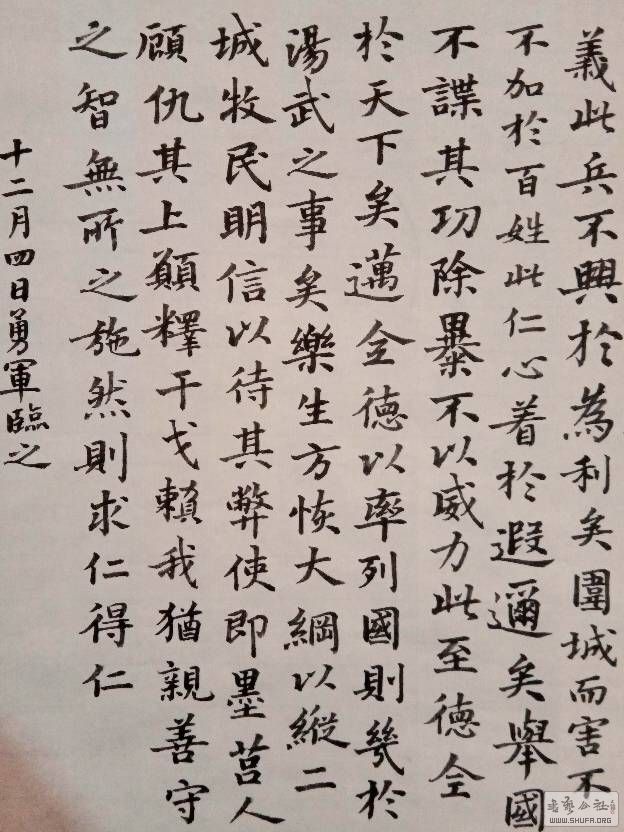 義此兵不興於為利矣圍城而害不
不加於百姓此仁心着於遐邇矣舉國
不謀其功除暴不以威力此至德全
於天下矣邁全德以率列國則幾於
湯武之事矣樂生方恢大綱以縱二
城牧民明信以待其弊使即墨莒人
顧仇其上願釋干戈賴我猶親善守
之智無所之施然則求仁得仁
十二月四日勇軍臨之
WWW.SHUFA.ORG